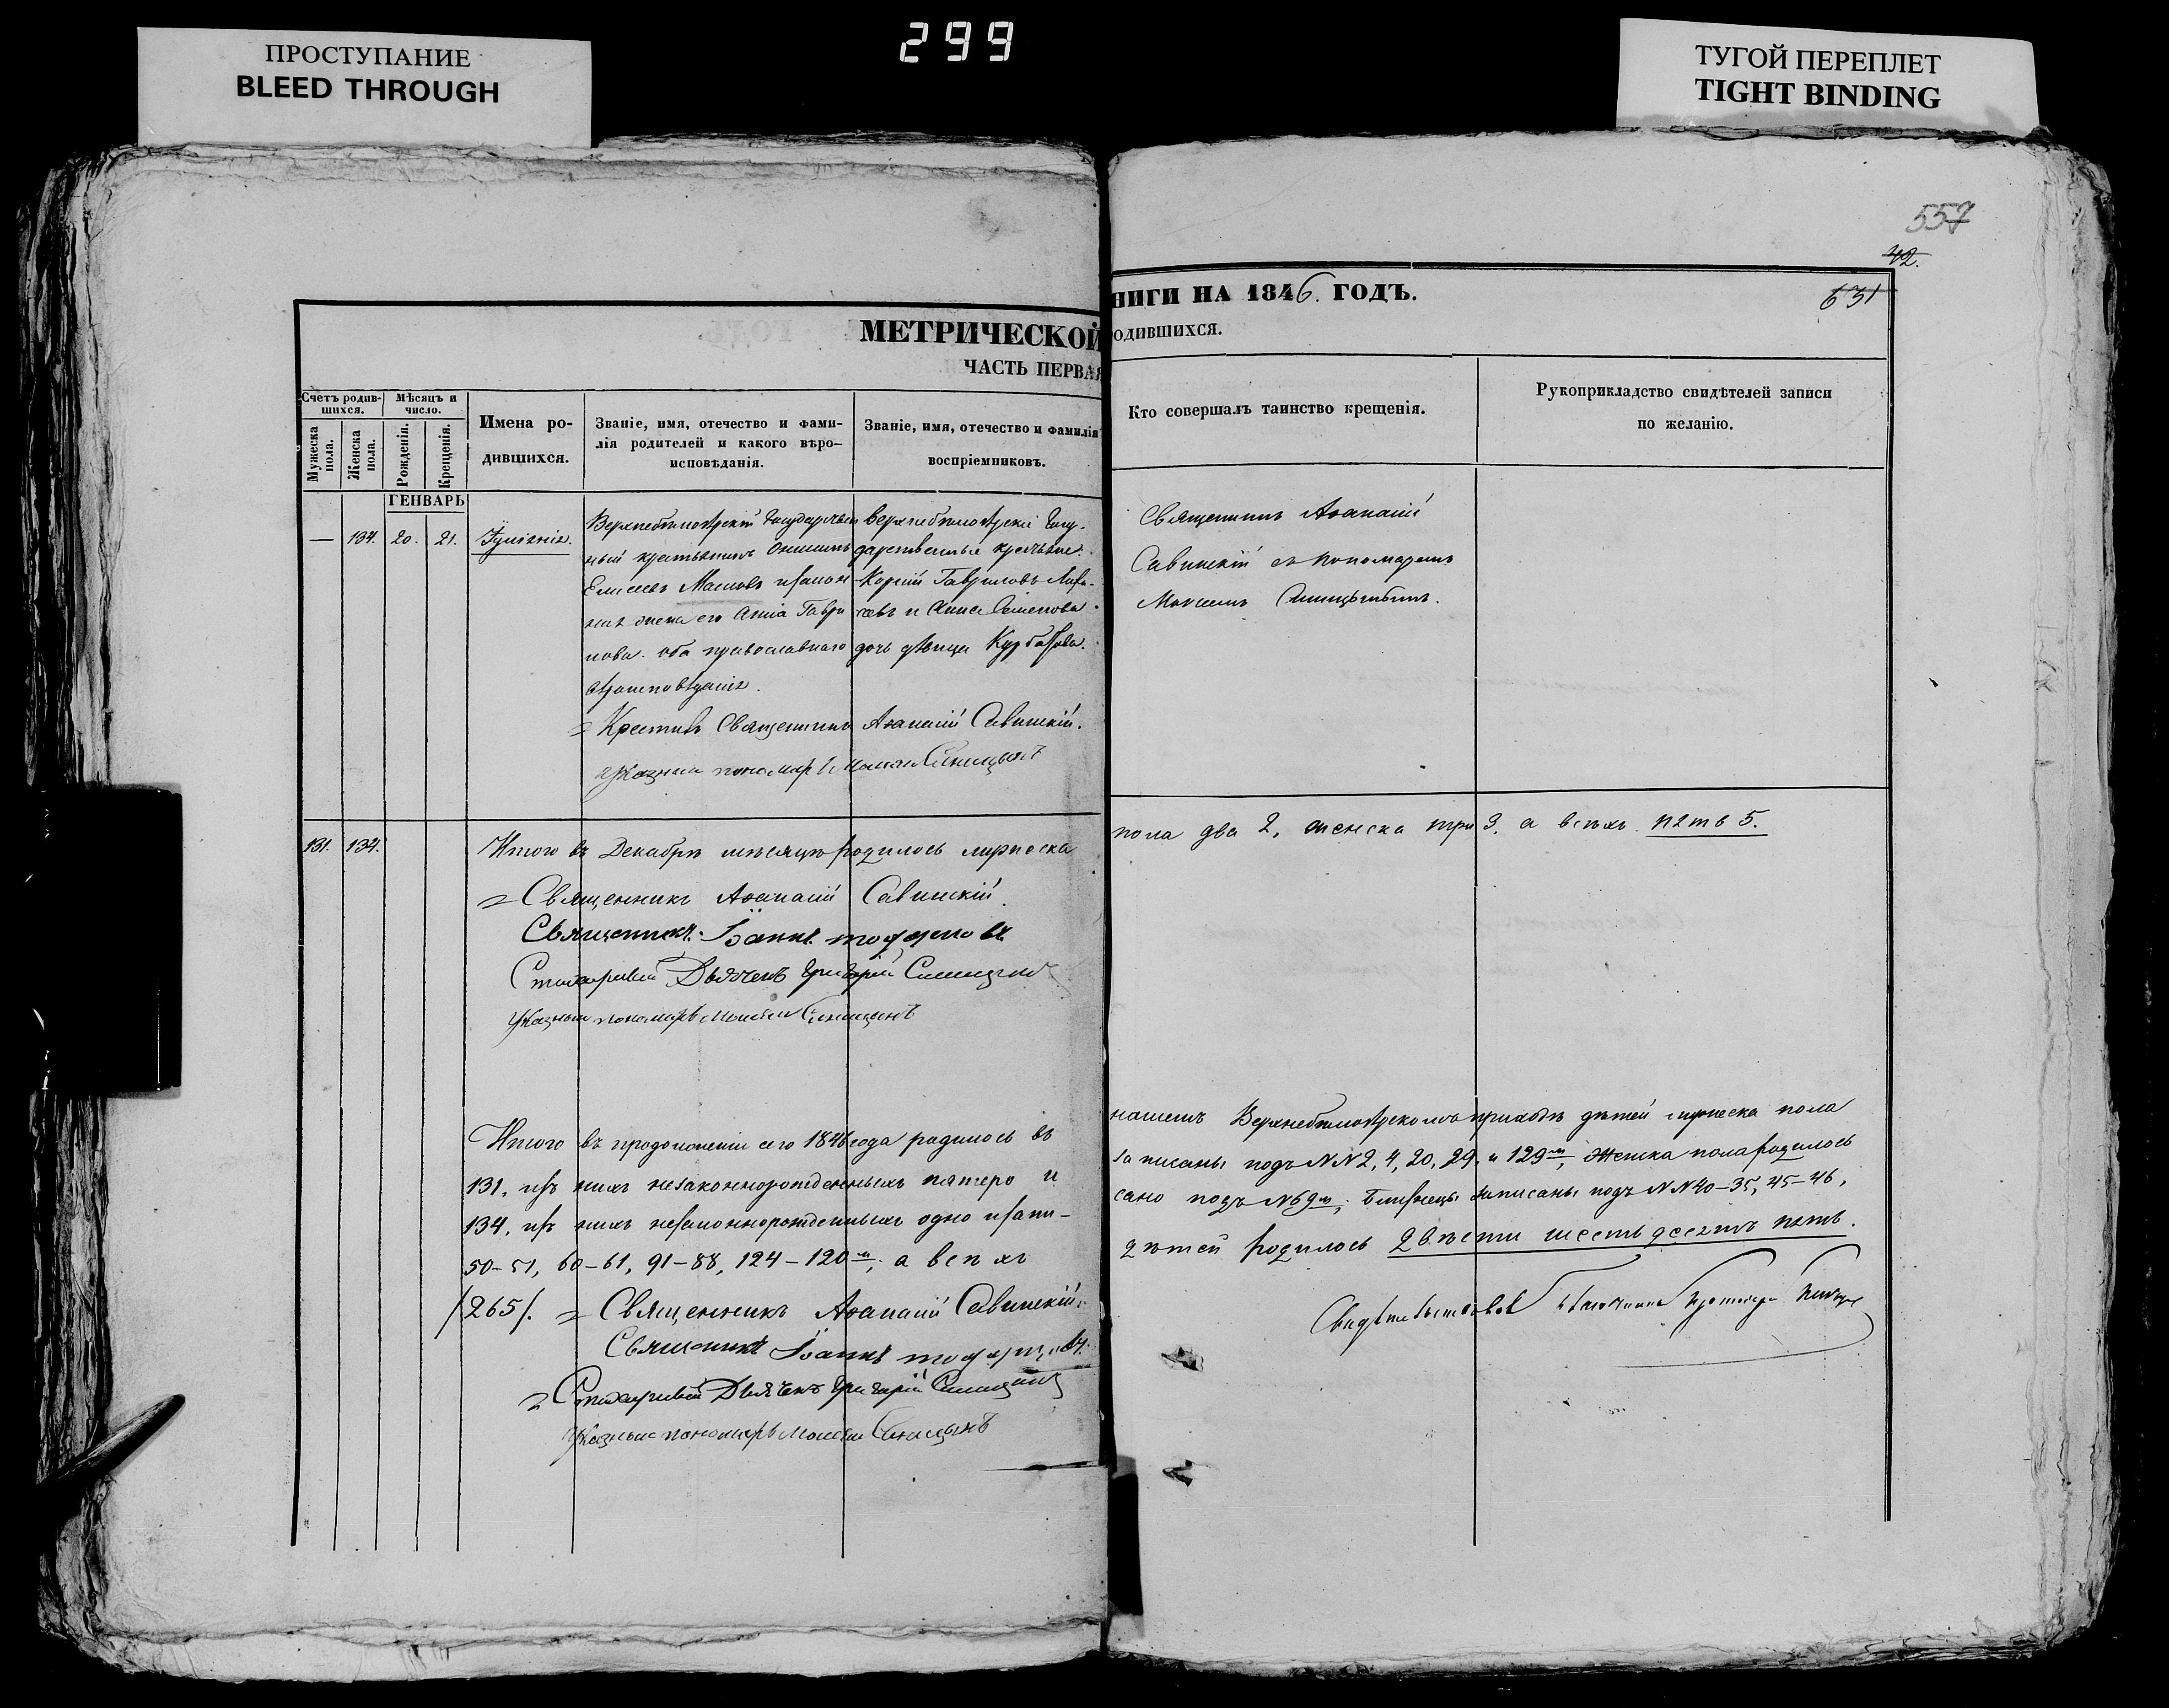 299
ПРОСТУПАНИЕ
BLEED THROUGH
ТУГОЙ ПЕРЕПЛЕТ
TIGHT BINDING
557
42.
631
МЕТРИЧЕСКОЙ
ЧАСТЬ ПЕРВАЯ
Счетъ родив-
шихся.
Мѣсяцъ и
число.
Мужеска
пола.
Женска
пола.
Рожденія.
Крещенія.
Имена ро-
дившихся.
Званіе, имя, отечество и фами-
лія родителей и какого вѣро-
исповѣданія.
Званіе, имя, отечество и фамилія
воспріемниковъ.
ГЕНВАРЬ
— 134. 20. 21.
Іуліанія.
крестьянинъ
Елисеевъ Масловъ и закон
ная жена его Анна Гаври
лова. оба православнаго
вѣроисповѣданія.
Верхнебѣлоярскіе Госу-
дарственные крестьяне.
Гавриловъ
и Анна Семенова
дочь дѣвица
Крестилъ Священникъ Аѳанасій Савинскій.
Указный пономарь Синицынъ
131. 134.
Итого въ Декабрѣ мѣсяцѣ родилось мужеска
Священникъ Аѳанасій Савинскій.
Священникъ Іоаннъ
Стихарный Дьячекъ Григорій Синицынъ
Указный пономарь Синицынъ
Итого въ продолженіи сего 1846 года родилось въ
131, изъ нихъ незаконнорожденныхъ пятеро и
134, изъ нихъ незаконнорожденныхъ одно и запи-
50-51, 60-61, 91-88, 124-120м; а всѣхъ
/265/. Священникъ Аѳанасій Савинскій.
Священникъ Іоаннъ
Стихарный Дьячекъ Григорій Синицынъ
Указный пономарь Синицынъ
НИГИ НА 1846. ГОДЪ.
ОДИВШИХСЯ.
Кто совершалъ таинство крещенія.
Рукоприкладство свидѣтелей записи
по желанію.
Священникъ Аѳанасій
Савинскій съ пономаремъ
Синицынымъ.
пола два 2, женска три 3, а всѣхъ пять 5.
нашемъ Верхнебѣлоярскомъ приходѣ дѣтей мужеска пола
записаны подъ NN 2, 4, 20, 29, и 129м, Женска пола родилось
сано подъ N 69м; Близнецы записаны подъ NN 40-35, 45-46,
дѣтей родилось двѣсти шестьдесятъ пять.
Свидѣтельствовалъ Благочинный Протоіерей